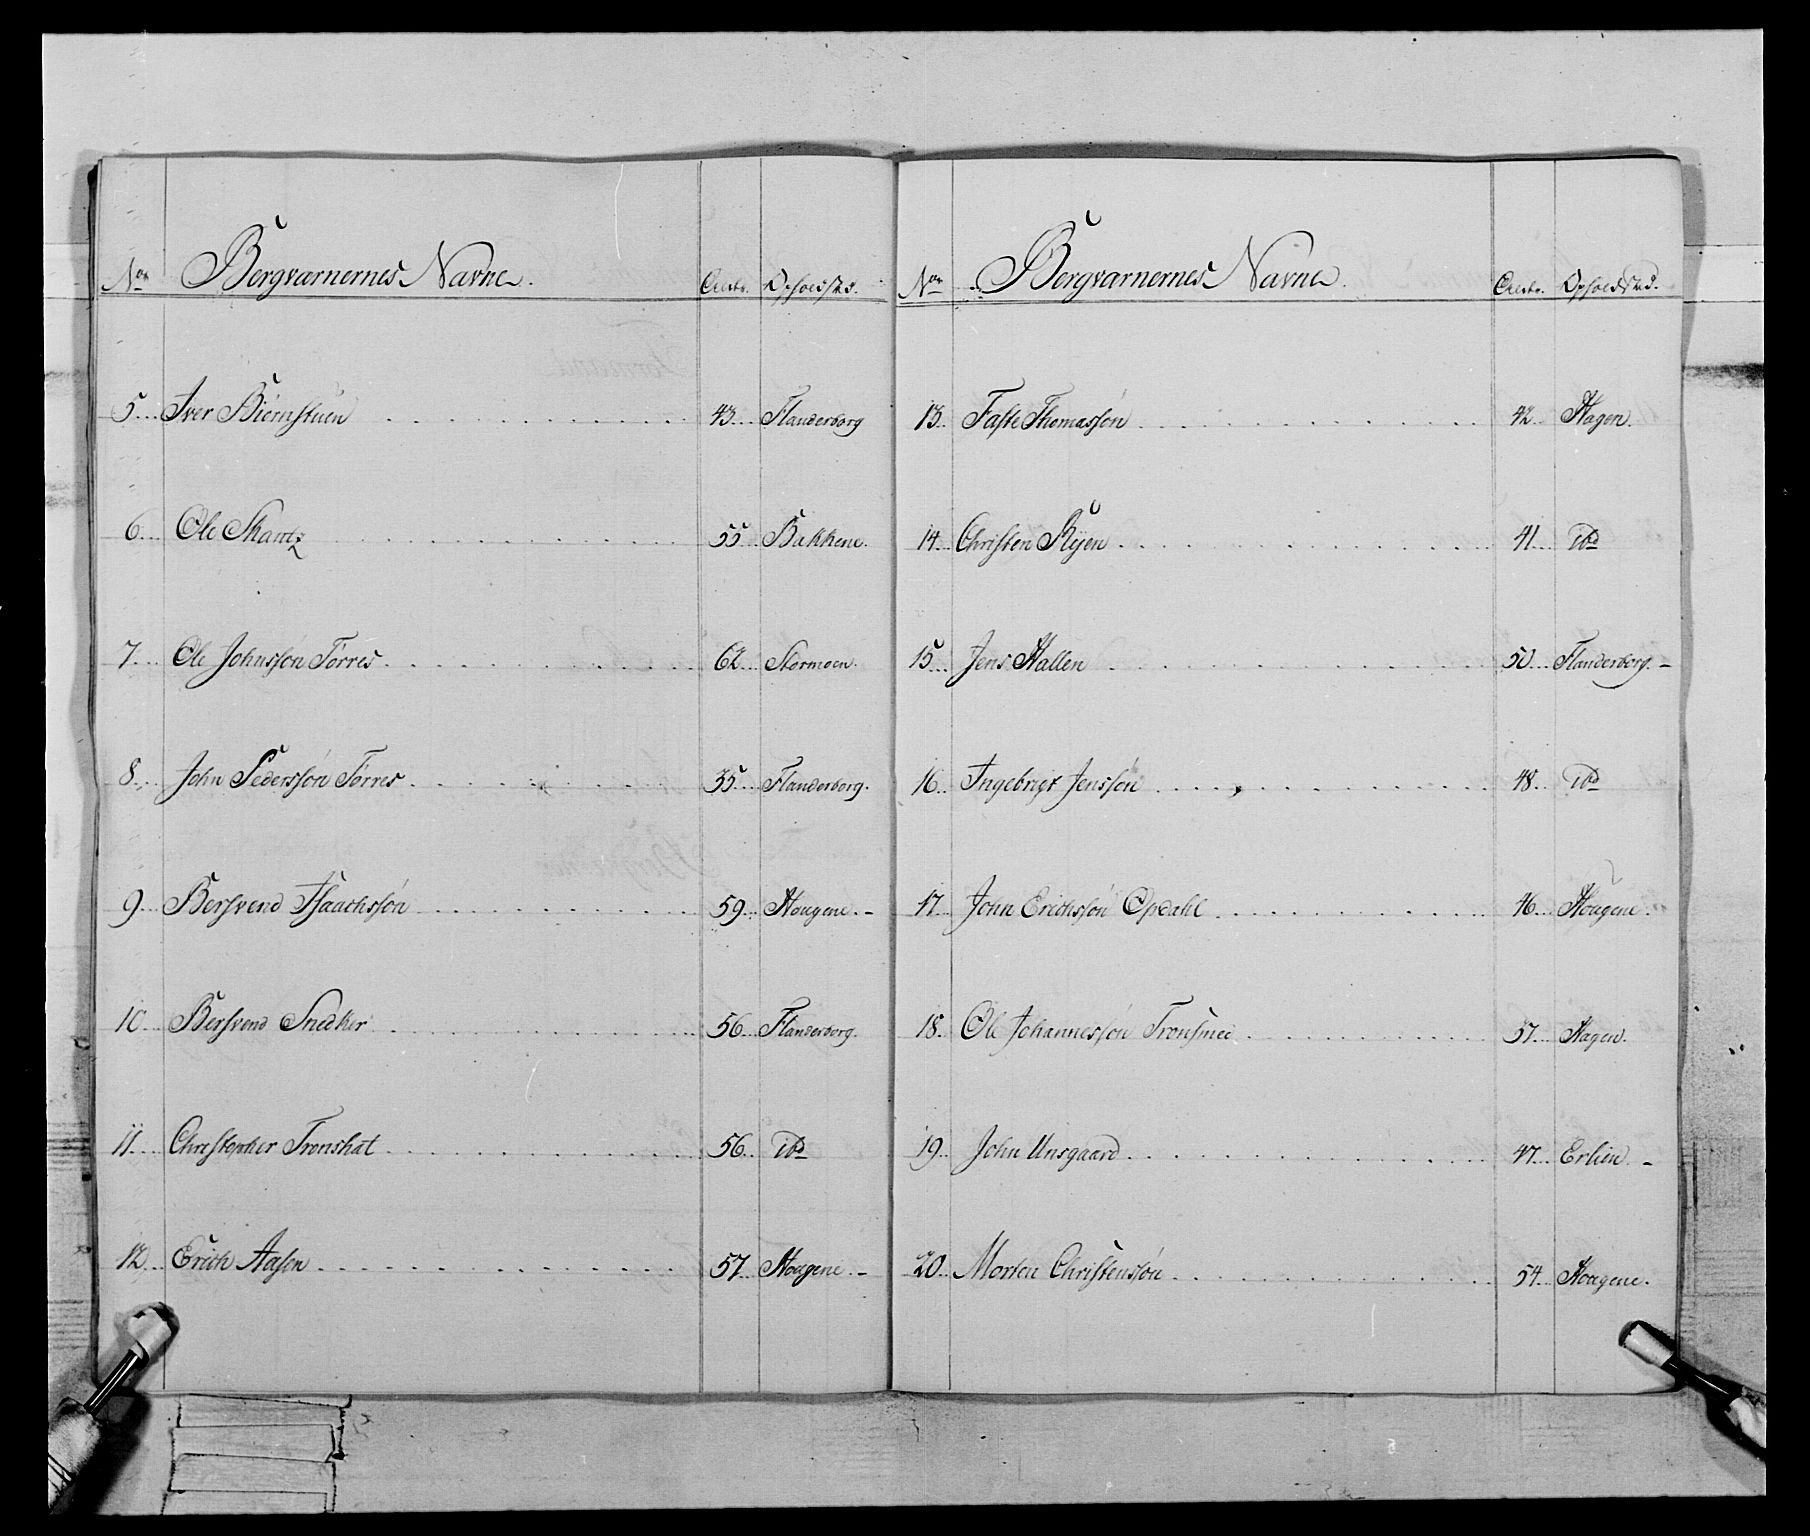 No. Bergværnernes Navne. Aldr. Opholdsted.
5. Iver Biörnstuen 43. Flanderborg
6. Ole Skantz 55. Bakkene.
7. Ole Johnssön Törres 62. Stormoen.
8. John Pederssön Törres 35. Flanderborg.
9. Bersvend Isaachsön 59. Hougene.
10. Bersvend Snedker 56. Flanderborg.
11. Christopher Tronshat 56. ibd
12. Erich Aasen 57. Hougene.
No. Bergværnernes Navne. Aldr. Opholdsted.
13. Faste Thomassön 42. Hagen.
14. Christen Ryen 41. ibd
15. Jens Hallen 50. Flanderborg.
16. Ingebrigt Jenssön 48. ibd
17. John Erichssön Opdahl 46. Hougene.
18. Ole Johannessön Tronsmee 57. Hagen.
19. John Unsgaard 47. Erlien
20. Morten Christensön 54. Hougene.